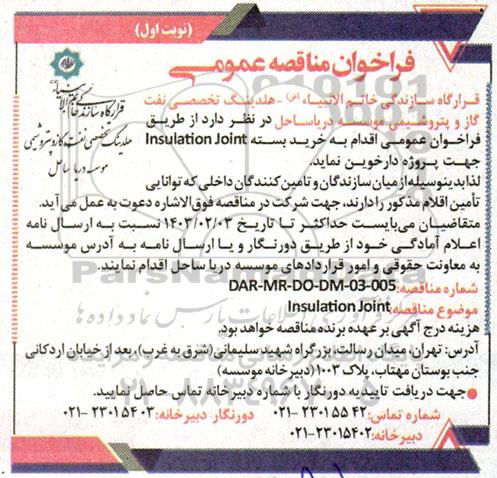 (نوبت اول)
فراخوان مناقصه عمومی
قرارگاه سازندگی خاتم الانبیاء (ص)
هلدینگ تخصصی نفت، گاز و پتروشیمی
موسسه دریا ساحل
قرارگاه سازندگی خاتم الانبیاء (ص) - هلدینگ تخصصی نفت
گاز و پتروشیمی موسسه دریاساحل در نظر دارد از طریق
فراخوان عمومی اقدام به خرید بسته Insulation Joint
جهت پروژه دارخوین نماید.
لذا بدینوسیله از میان سازندگان و تامین کنندگان داخلی که توانایی
تأمین اقلام مذکور را دارند، جهت شرکت در مناقصه فوق الاشاره دعوت به عمل می آید.
متقاضیان می بایست حداکثر تا تاریخ ۱۴۰۳/۰۲/۰۳ نسبت به ارسال نامه
اعلام آمادگی خود از طریق دورنگار و یا ارسال نامه به آدرس موسسه
به معاونت حقوقی و امور قراردادهای موسسه دریا ساحل اقدام نمایند.
شماره مناقصه: DAR-MR-DO-DM-03-005
موضوع مناقصه: Insulation Joint
هزینه درج آگهی بر عهده برنده مناقصه خواهد بود.
آدرس: تهران، میدان رسالت، بزرگراه شهید سلیمانی (شرق به غرب)، بعد از خیابان اردکانی
جنب بوستان مهتاب، پلاک ۱۰۰۳ (دبیرخانه موسسه)
جهت دریافت تاییدیه دورنگار با شماره دبیرخانه تماس حاصل نمایید.
شماره تماس: ۴۲ ۵۵ ۲۳۰۱ -۰۲۱ دورنگار دبیرخانه: ۲۳۰۱۵۴۰۳-۰۲۱
دبیرخانه: ۲۳۰۱۵۴۰۲-۰۲۱